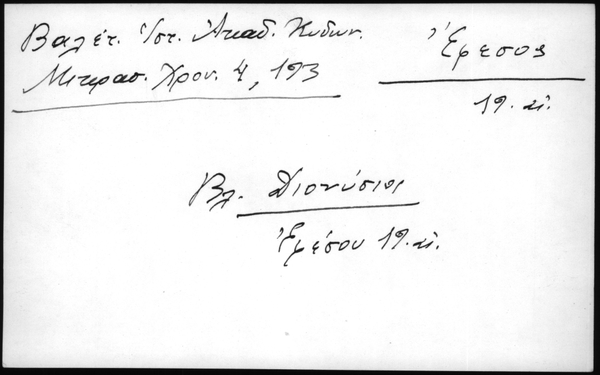 Βαλέτ. Ἱστ. Ἀκαδ. Κυδων.
Μικρασ. Χρον. 4, 193
Ἔφεσος
19. αἰ.
Βλ. Διονύσιος
Ἐφέσου 19. αἰ.